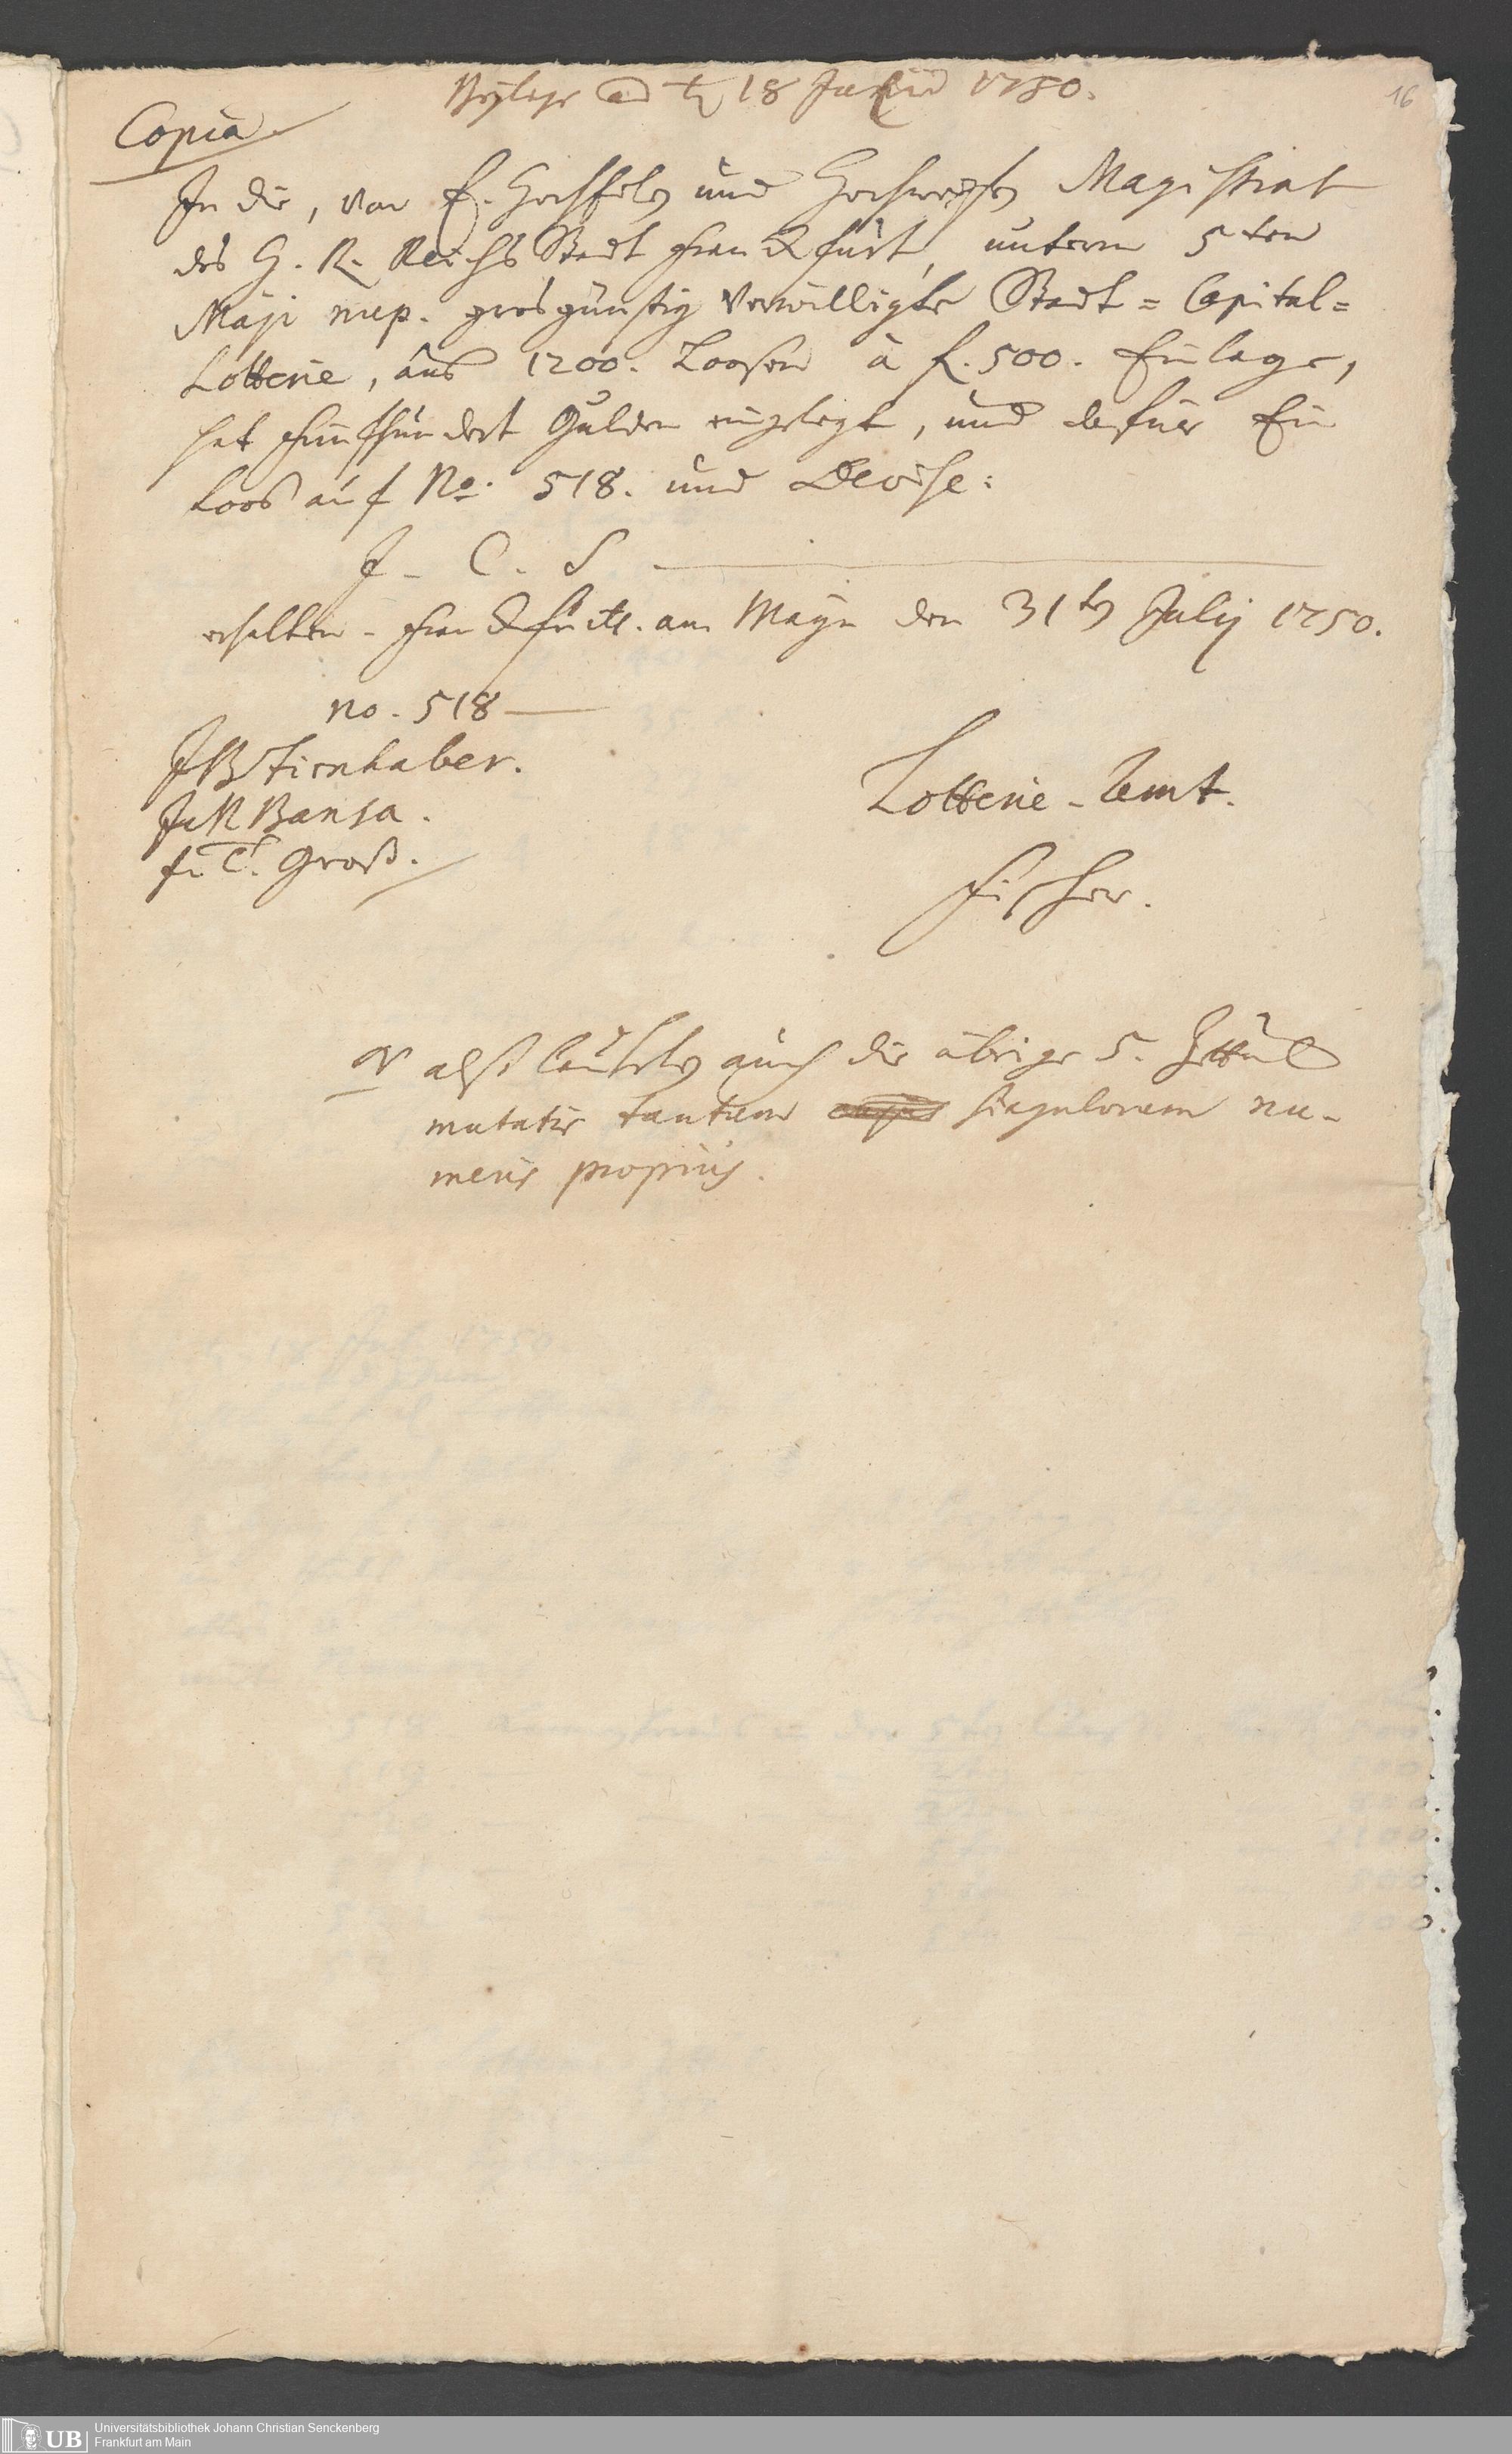 Beylage ad d. 18 Julii 1750.
16
Copia
In die, von E. HochEdlen und Hochweisen Magistrat
des H. R. Reichs Stadt Franckfurt, unterm 5ten
Maji nup. grosgünstig verwilligte Stadt = Capital =
Lotterie, aus 1200. Loosen à f. 500. Einlage,
hat Fünfhundert Gulden eingelegt, und dafür Ein
Loos auf No. 518. und Devise:
J. C. S.
erhalten. Franckfurt. am Mayn den 31ten Julij 1750.
no. 518
JB Fienhaber.
Bansa.
Groß.
Lotterie-Amt.
Fischer.
also lauten auch die übrige 5. Zettul
mutatis tantum singulorum nu-
meris propriis.
UB
Universitätsbibliothek Johann Christian Senckenberg
Frankfurt am Main